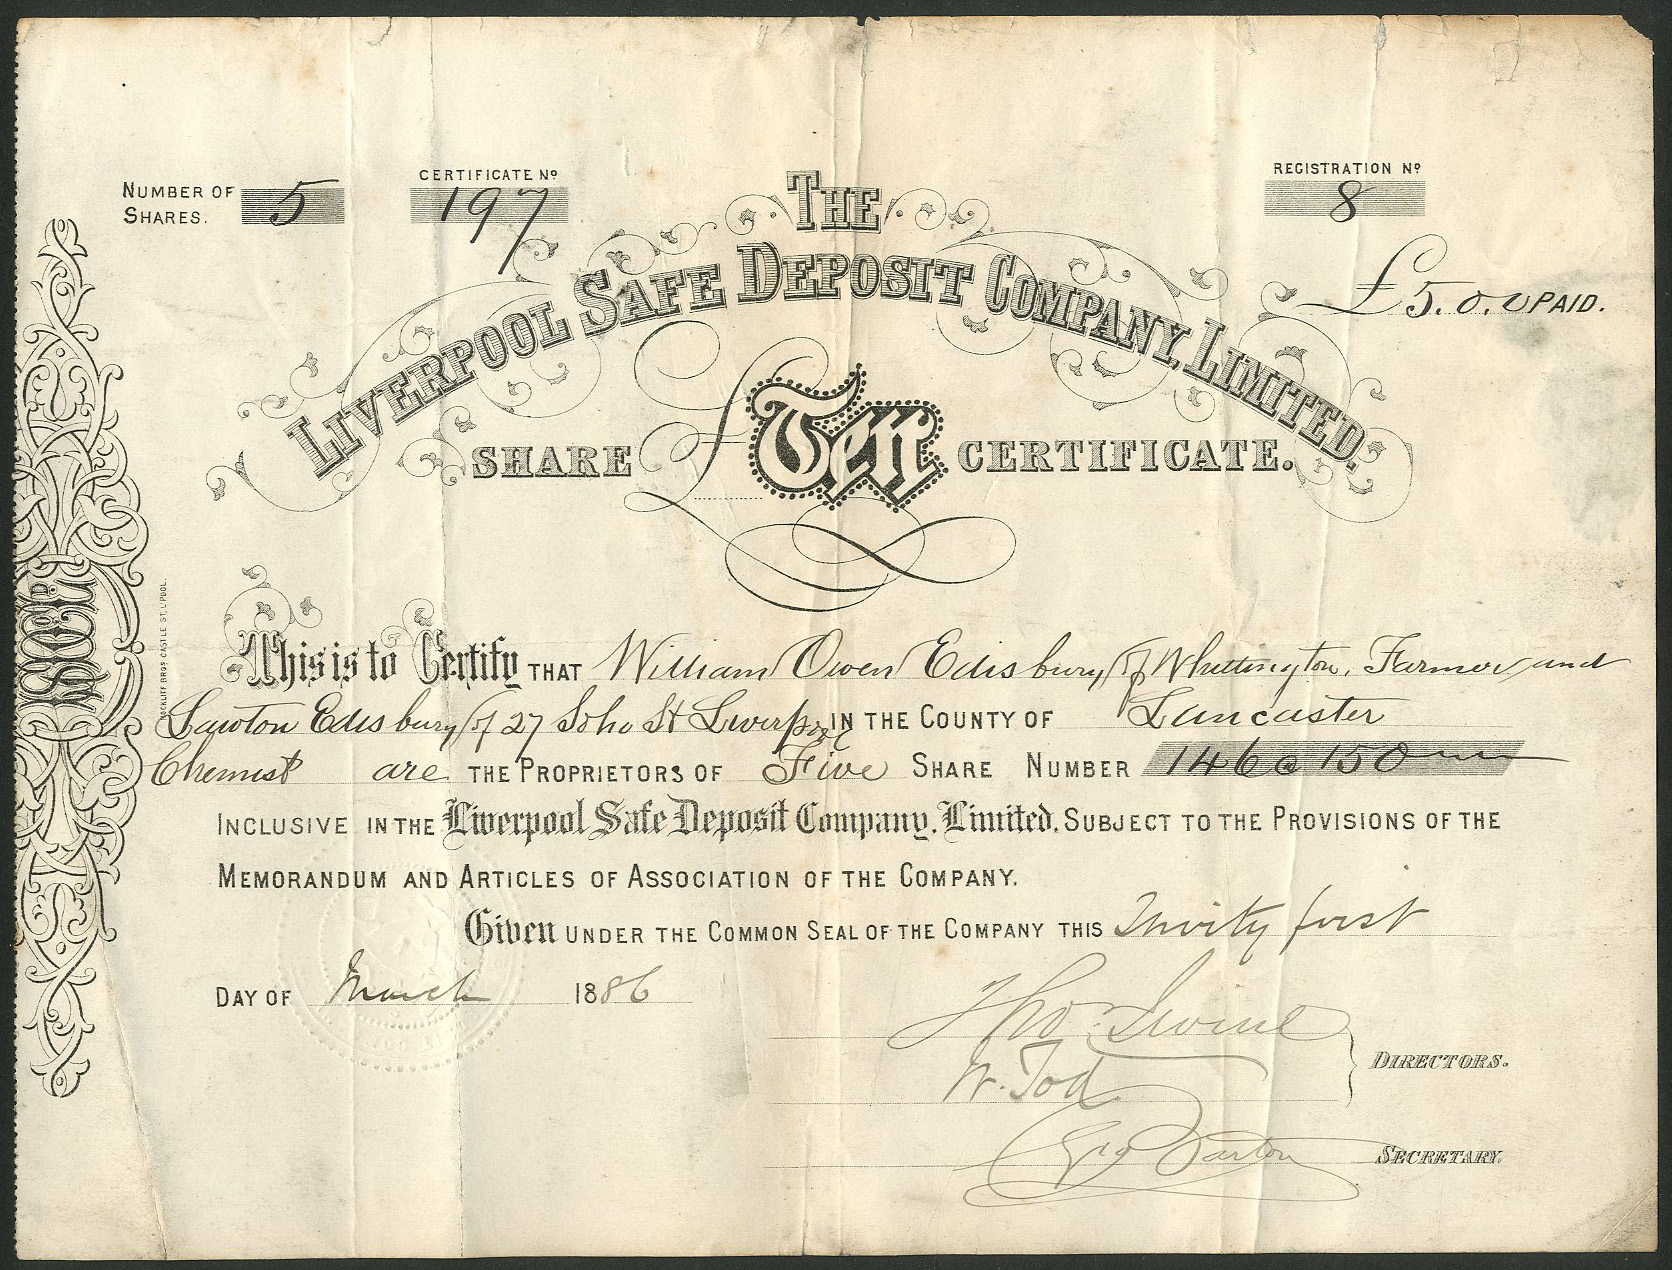 NUMBER OF SHARES. 5
CERTIFICATE No 197
REGISTRATION No 8
THE
LIVERPOOL SAFE DEPOSIT COMPANY, LIMITED.
£5.0.0 PAID.
SHARE £Ten CERTIFICATE.
ROCKLIFF BROS CASTLE ST. L'POOL.
This is to Certify THAT William Owen Edisbury of Whittington, Farmer and
Lawton Edisbury of 27 Soho St Liverpool IN THE COUNTY OF Lancaster
Chemist are THE PROPRIETORS OF Five SHARE NUMBER 146 @ 150
INCLUSIVE IN THE Liverpool Safe Deposit Company, Limited, SUBJECT TO THE PROVISIONS OF THE
MEMORANDUM AND ARTICLES OF ASSOCIATION OF THE COMPANY.
Given UNDER THE COMMON SEAL OF THE COMPANY THIS Thirty first
DAY OF March 1886
Thos Irvine
W. Tod
DIRECTORS.
Geo Barton SECRETARY.